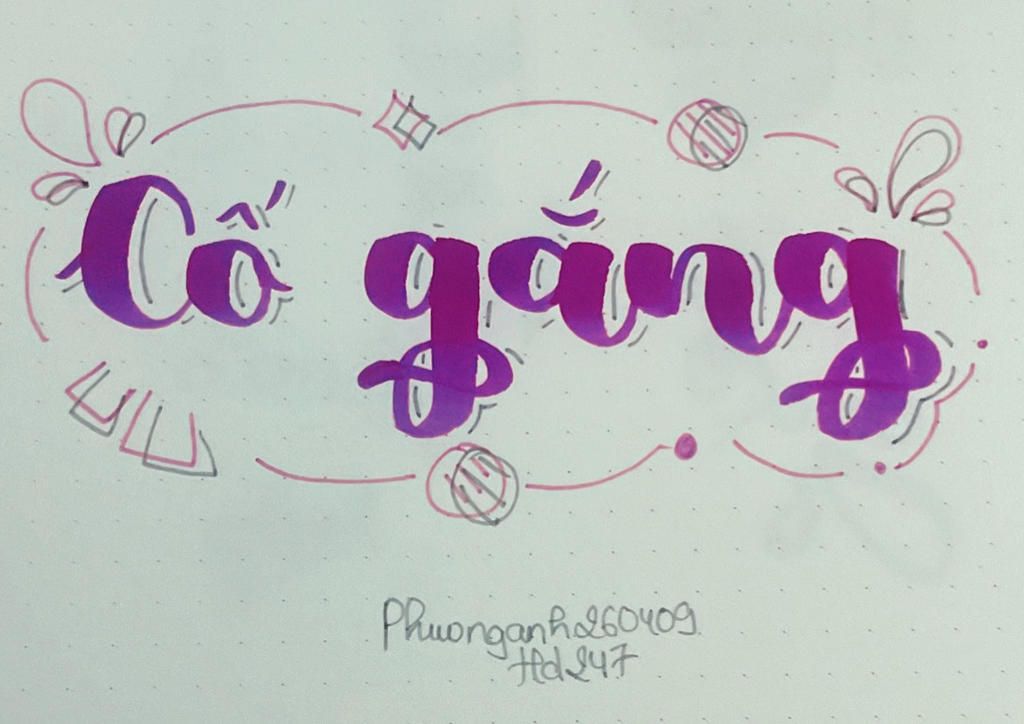 Cố gắng
Phuonganh260409
Hd247